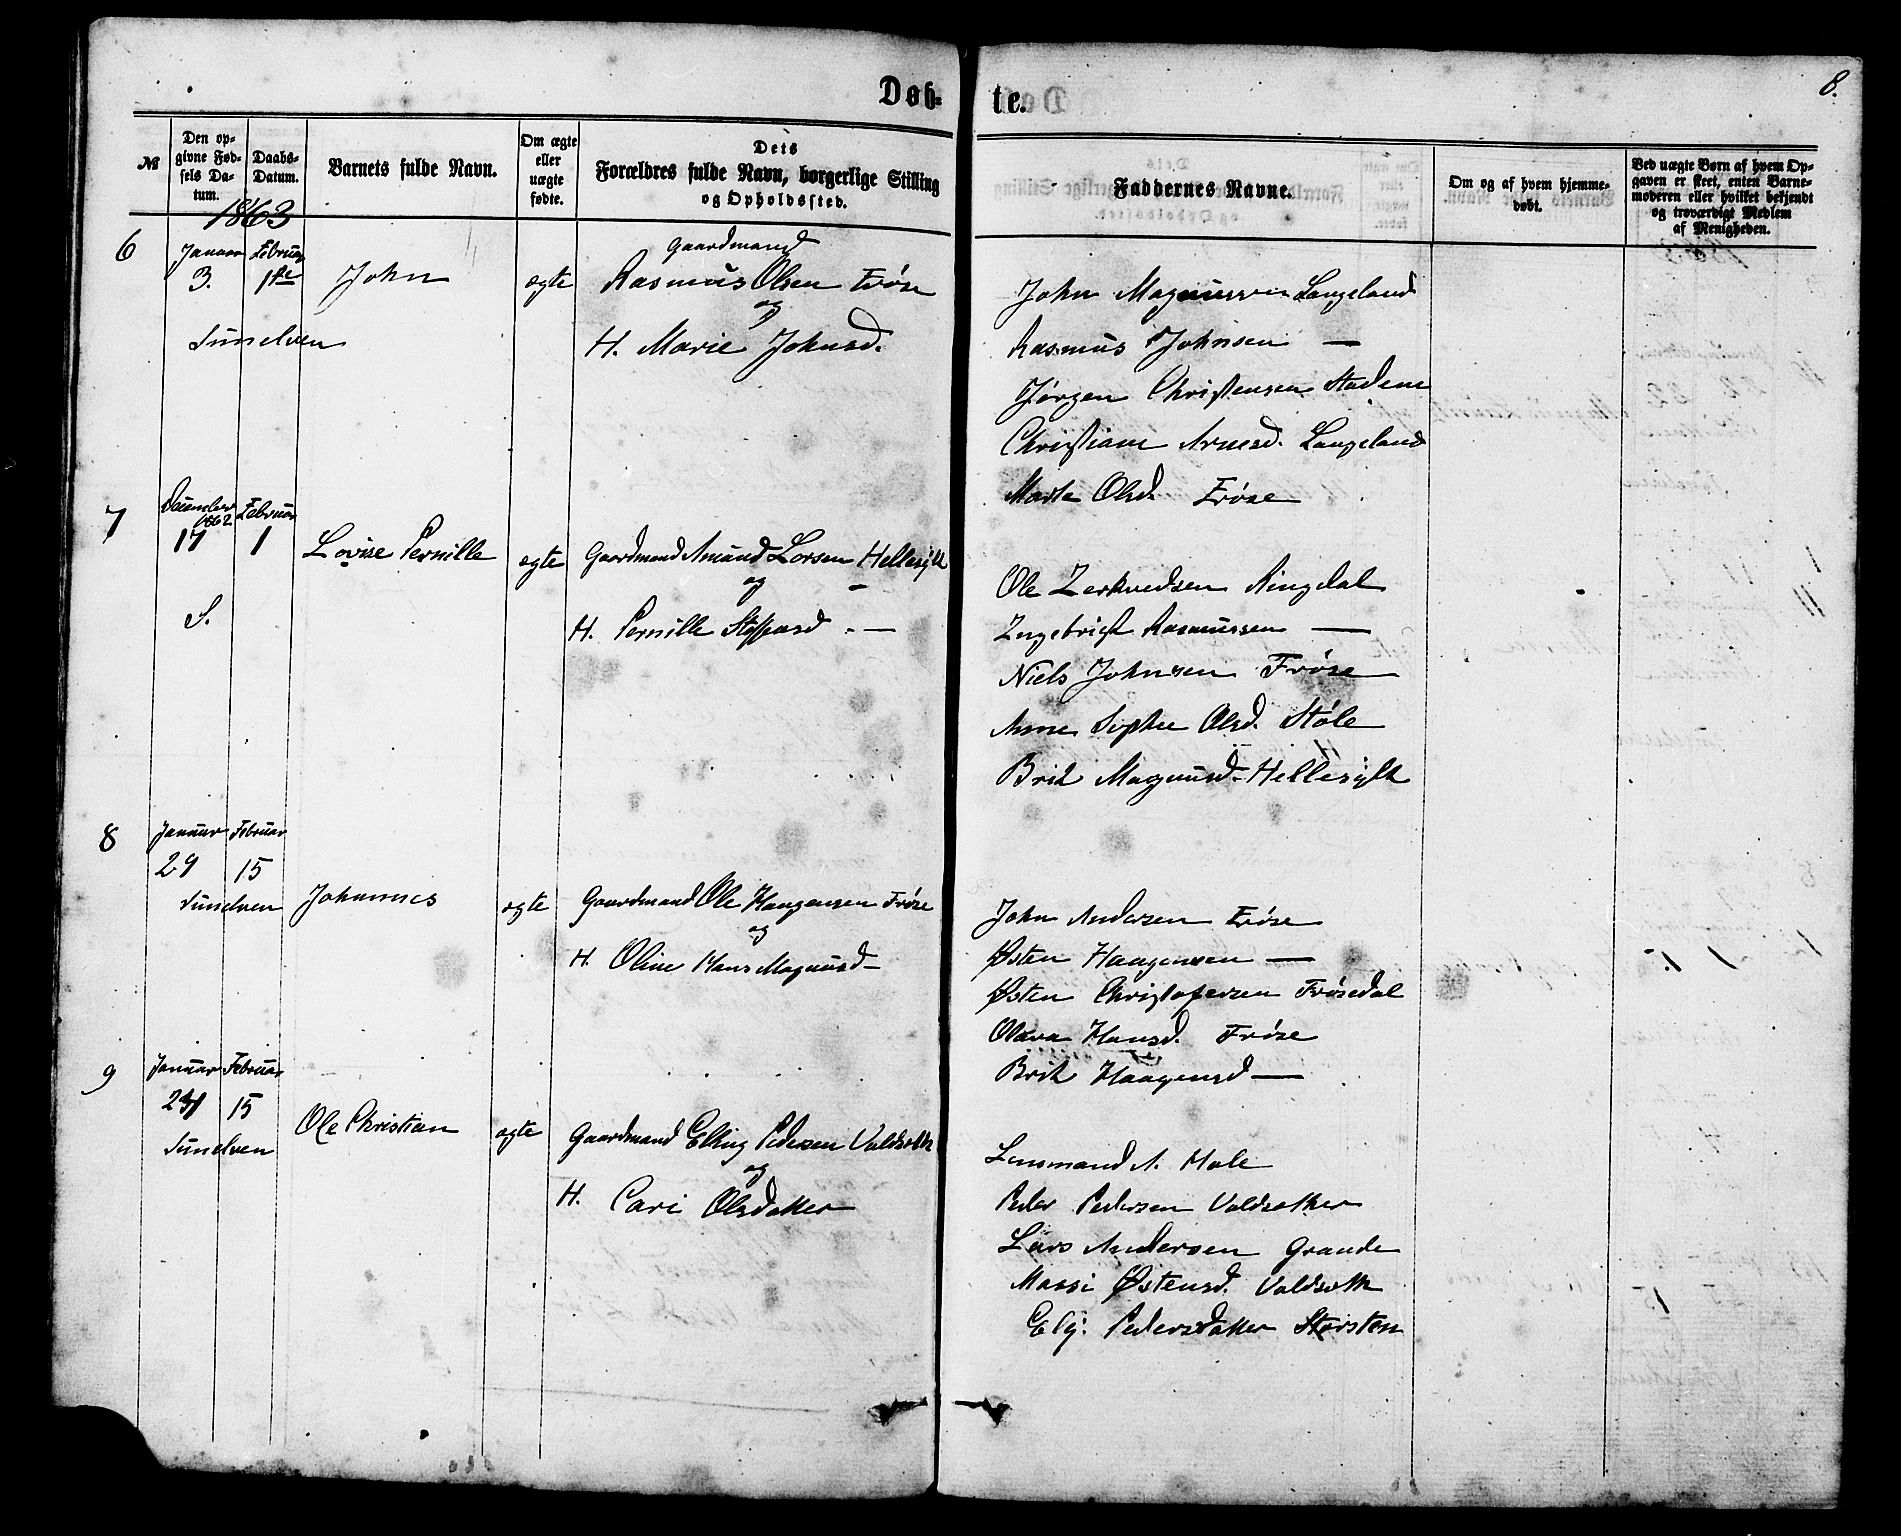 Døb-
te.
8.
№
Den opgivne Fødsels Datum.
Daabs-Datum.
Barnets fulde Navn.
Om ægte eller uægte fødte.
Dets
Forældres fulde Navn, borgerlige Stilling
og Opholdssted.
Faddernes Navne.
Om og af hvem hjemmedøbt.
Ved uægte Børn af hvem Opgaven er skeet, enten Barnemoderen eller hvilket bekjendt og troværdigt Medlem af Menigheden.
1863
6
Januar Februar
3. 1ste
John
ægte
Gaardmand
Rasmus Olsen Frøse
og
H. Marie Johnsd.
Sunelven
John Magnussen Langeland
Rasmus Johnsen —
Jørgen Christensen Stadem
Christiane Arnesd. Langeland
Marte Olsd. Frøse
7
December 1862 Februar
17 1
Lovise Pernille
ægte
Gaardmand Amund Larsen Hellesylt
og
H. Pernille Steffensd. —
S.
Ole Zerkvedsen Ringdal
Ingebrigt Rasmussen —
Niels Johnsen Frøse
Anne Sophie Olsd. Støle
Brit Magnusd. Hellesylt
8
Januar Februar
29 15
Sunelven
Johannes
ægte
Gaardmand Ole Haagensen Frøse
og
H. Oline Hans Magnusd —
John Andersen Frøse
Østen Haagensen —
Østen Christofersen Frøsedal
Olava Hansd. Frøse
Brit Haagensd —
9
Januar Februar
15
Sunelven
Ole Christian
ægte
Gaardmand Elling Pedersen
og
H. Cari Olsdatter
Lensmand A. Hole
Peder Pedersen Valdsæther
Lars Andersen Grande
Massi Østensd. Valdsæth
Pedersdatter